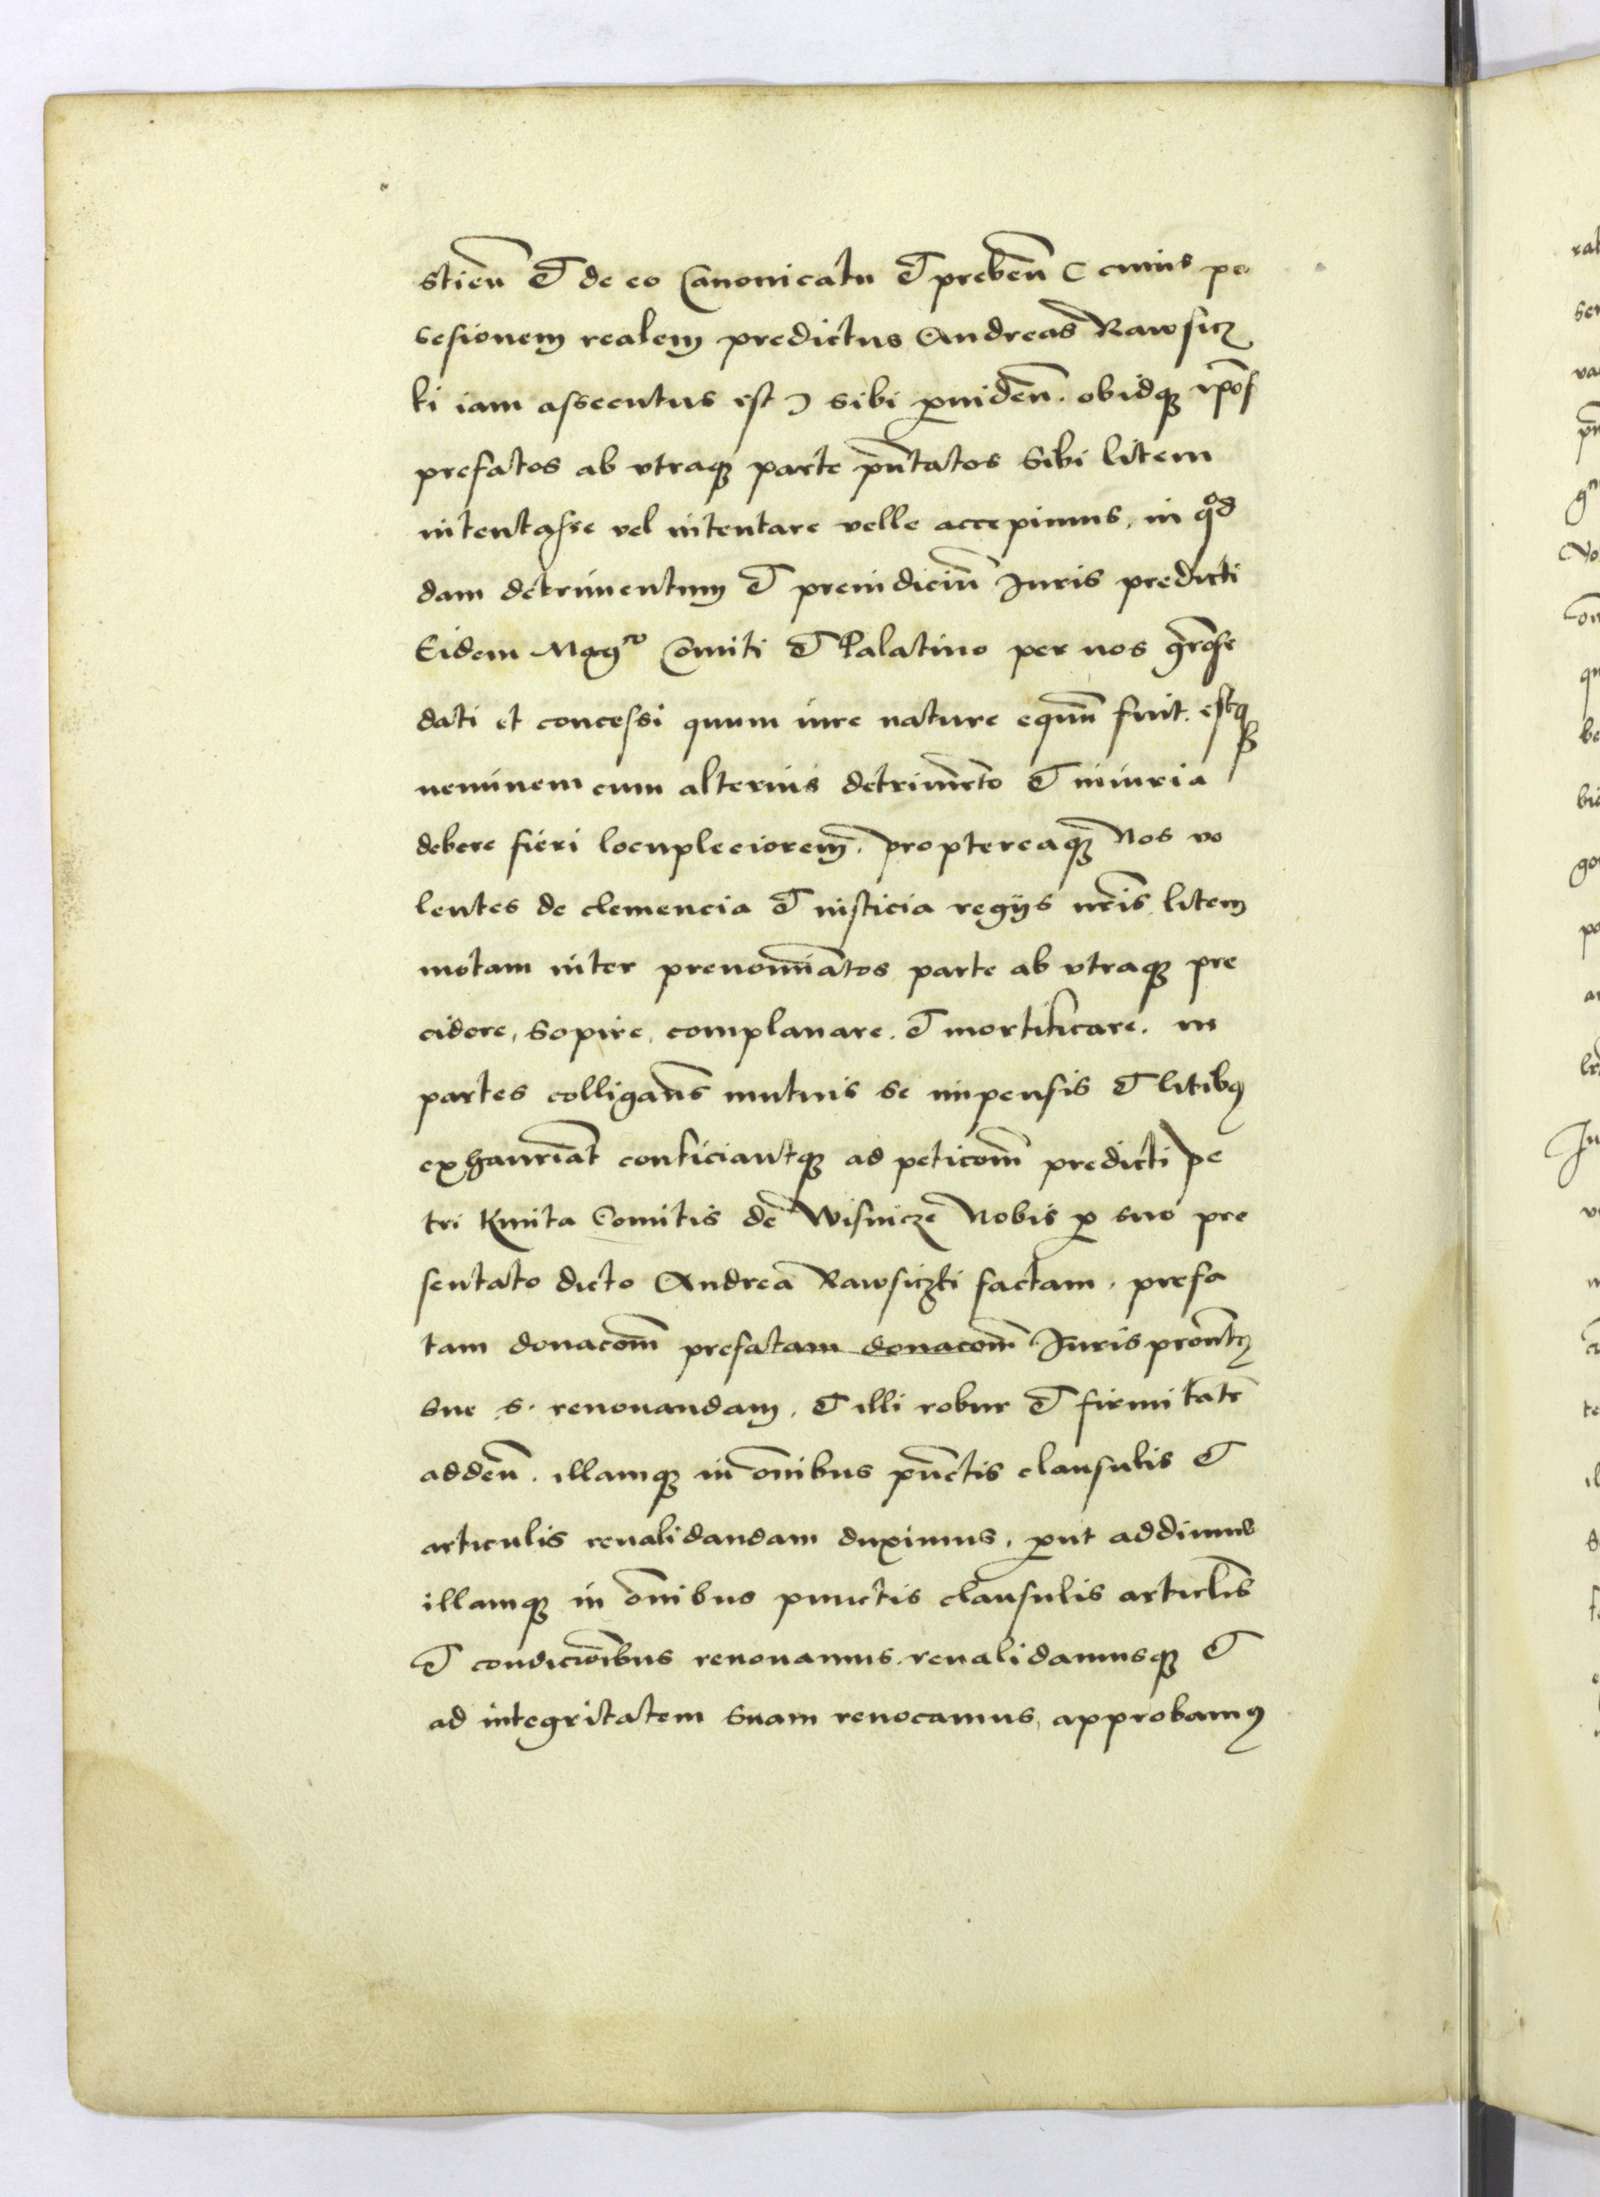 stien̄ et de eo Canonicatu et preben̄ ( cuius po
sesionem realem predictus Andreas Rawsicz
ki iam assecutus est ) sibi ꝓuiden̄. obidqꝫ ip̄os
prefatos ab vtraqꝫ parte pn̄tatos sibi litem
intentasse vel intentare velle accepimus, in qͦd
dam detrimentum et preiudiciū Iuris predicti
Eidem Mag^co Comiti et Palatino per nos gr̄ose
dati et concessi quum iure nature equū fuit. estqꝫ
neminem cum alterius detrimēto et iniuria
debere fieri locupleciorem̄. proptereaqꝫ Nos vo
lentes de clemencia et iusticia regijs nr̄is litem
motam inter prenomīatos parte ab vtraqꝫ pre
cidere, sopire, complanare. et mortificare. in
partes colligan̄s mutuis se impensis et litibꝰ
exhauriāt conficiantqꝫ ad peticom̄ predicti Pe
tri Kmita Comitis de Wisnicze Nobis ꝓ suo pre
sentato dicto Andrea Rawsiczki factam. prefa
tam donacom̄ prefatam donacom̄ Iurispron̄tꝰ
sue s. renouandam. et illi robur et firmitatē
adden̄. illamqꝫ in om̄ibus pūctis clausulis et
articulis reualidandam duximus. ꝓut addimus
illamqꝫ in om̄ibus punctis clausulis articl̄is
et condicōibus renouamus. reualidamusqꝫ et
ad integritatem suam reuocamus, approbamꝰ